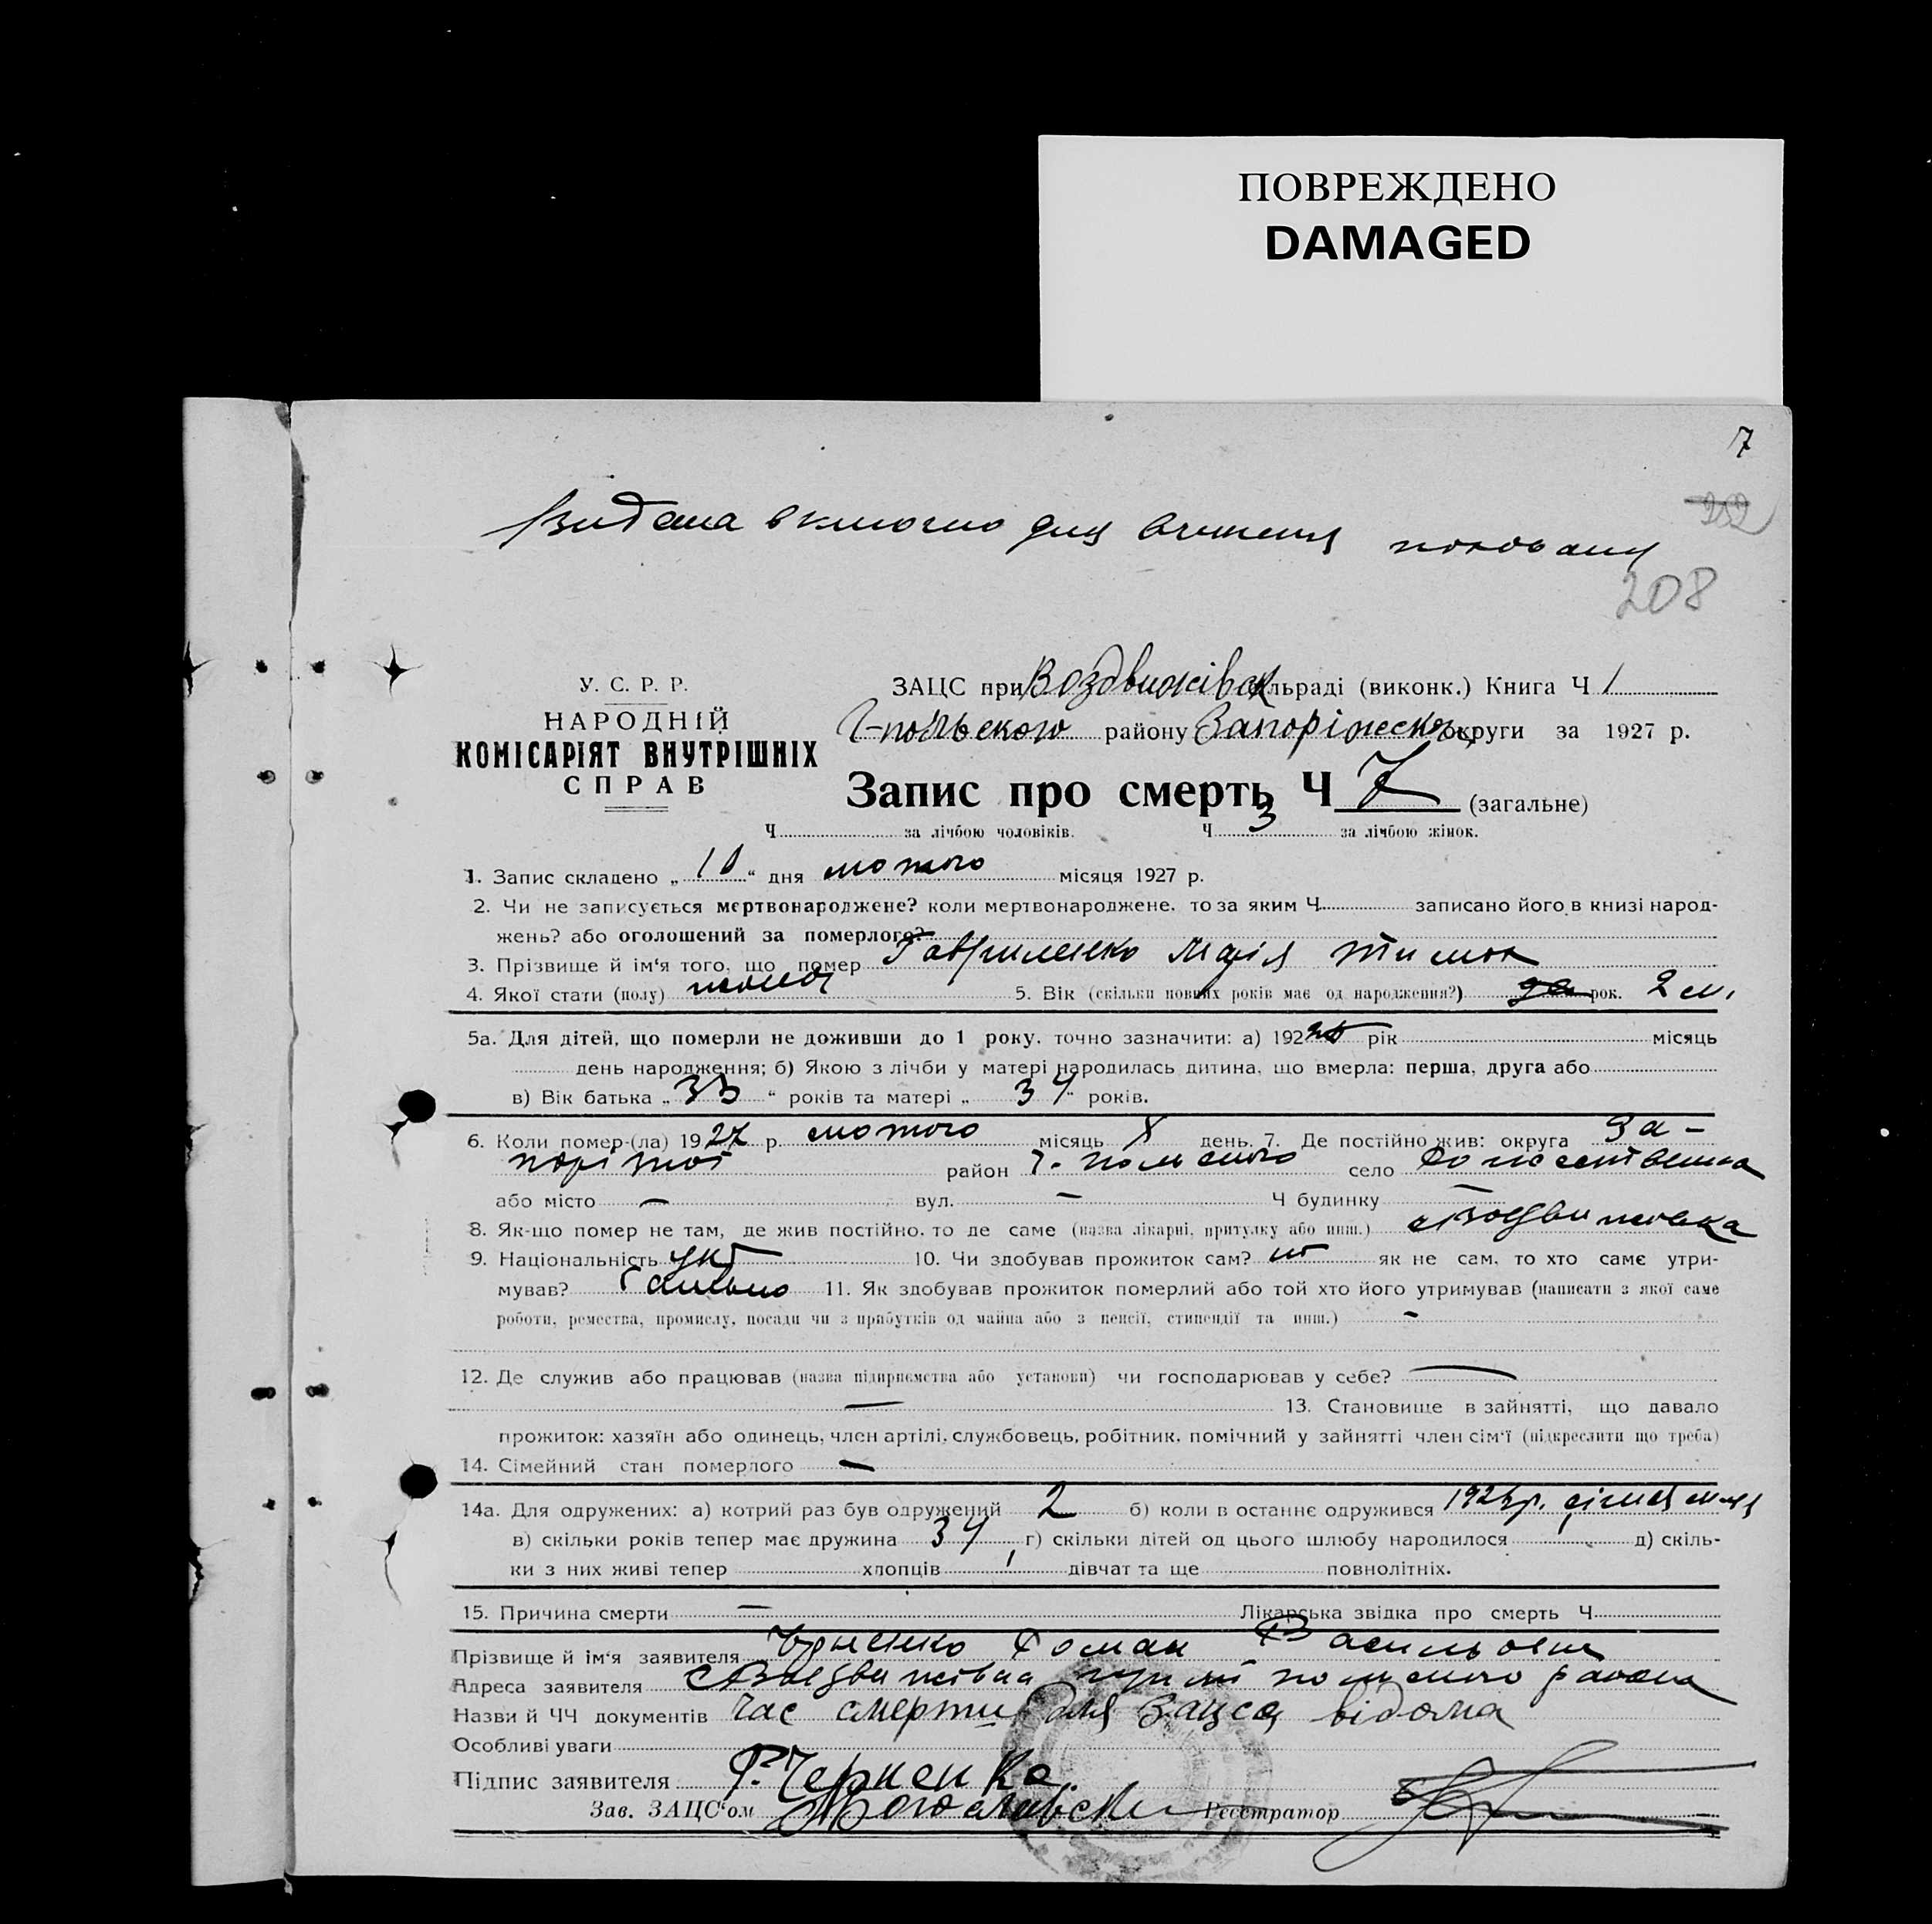 ПОВРЕЖДЕНО
DAMAGED
7
208
У. С. Р. Р.
НАРОДНІЙ
КОМІСАРІЯТ ВНУТРІШНІХ
СПРАВ
ЗАЦС при Воздвижівск сільраді (виконк.) Книга Ч 1
Г-польского району Запоріжської округи за 1927 р.
Запис про смерть Ч 7 (загальне)
Ч за лічбою чоловіків. Ч 3 за лічбою жінок.
1. Запис складено „ 10 “ дня лютого місяця 1927 р.
2. Чи не записується мертвонароджене? коли мертвонароджене, то за яким Ч записано його в книзі народ-
жень? або оголошений за померлого?
3. Прізвище й ім'я того, що помер Гавриленко Марія Тимох
4. Якої статі (полу) жоноч 5. Вік (скільки повних років має од народження?) рок. 2 м.
5а. Для дітей, що померли не доживши до 1 року, точно зазначити: а) 192 рік місяць
день народження; б) Якою з лічби у матері народилась дитина, що вмерла: перша, друга або
в) Вік батька „ “ років та матері „ 34 “ років.
6. Коли помер-(ла) 1927 р. лютого місяць день. 7. Де постійно жив: округа За-
поріжої район Г. польского село
або місто — вул. — Ч будинку —
8. Як-що помер не там, де жив постійно, то де саме (назва лікарні, притулку або инш.) Воздвижовка
9. Національність укр 10. Чи здобував прожиток сам? ні як не сам, то хто саме утри-
мував? батько 11. Як здобував прожиток померлий або той хто його утримував (написати з якої саме
роботи, ремества, промислу, посади чи з прибутків од майна або з пенсії, стипендії та инш.) -
12. Де служив або працював (назва підприємства або установи) чи господарював у себе? —
— 13. Становище в зайнятті, що давало
прожиток: хазяїн або одинець, член артілі, службовець, робітник, помічний у зайнятті член сім'ї (підкреслити що треба)
14. Сімейний стан померлого —
14а. Для одружених: а) котрий раз був одружений 2 б) коли в останнє одружився
в) скільки років тепер має дружина 34 г) скільки дітей од цього шлюбу народилося 1 д) скіль-
ки з них живі тепер хлопців 1 дівчат та ще повнолітніх.
15. Причина смерти — Лікарська звідка про смерть Ч
Прізвище й ім'я заявителя Роман Васильович
Адреса заявителя с Воздвижівка польского района
Назви й ЧЧ документів Час смерти для Зацса відома
Особливі уваги
Підпис заявителя Р. Черненко.
Зав. ЗАЦС'ом Реєстратор